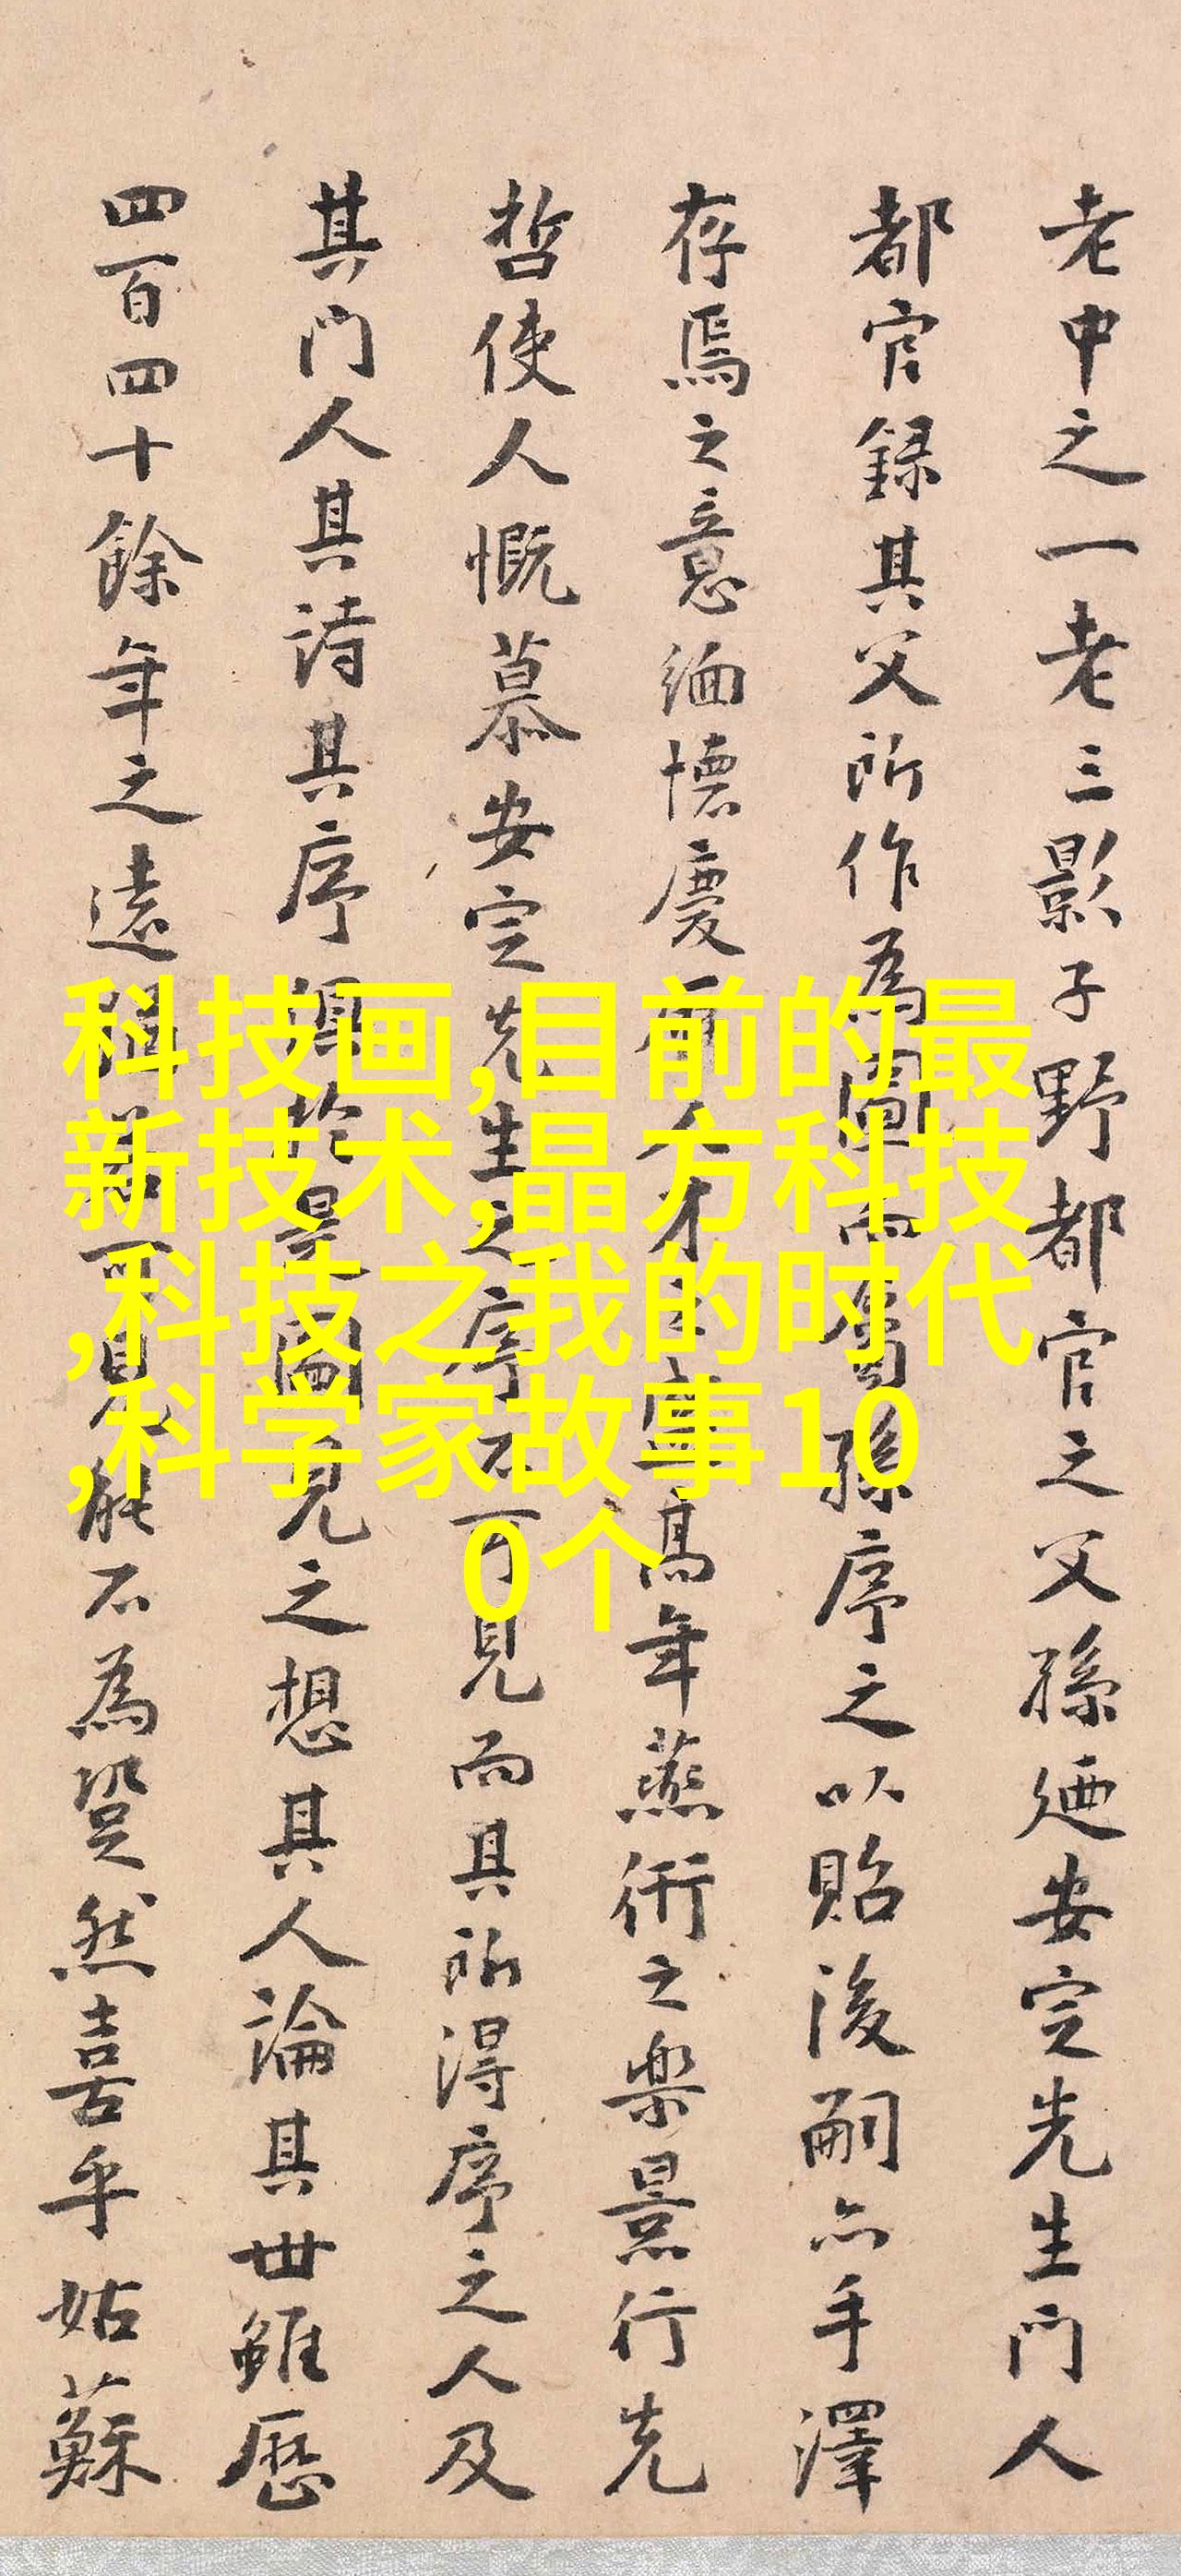 老中之一老三影子野都官之父孫廼安定先生門人
都官録其父所作為圖而屬孫序之以貽後嗣亦手澤
存焉之意緬懷慶人才之高年燕衎之樂景行先
哲使人慨慕安定先生之序不可見而其所得序之人及
其門人其詩其序於是圖見之想其人論其世雖歷
四百四十餘年之遠可見能不為跫然喜乎姑蘇
科技画,目前的最
新技术,晶方科技
,科技之我的时代
,科学家故事10
0个